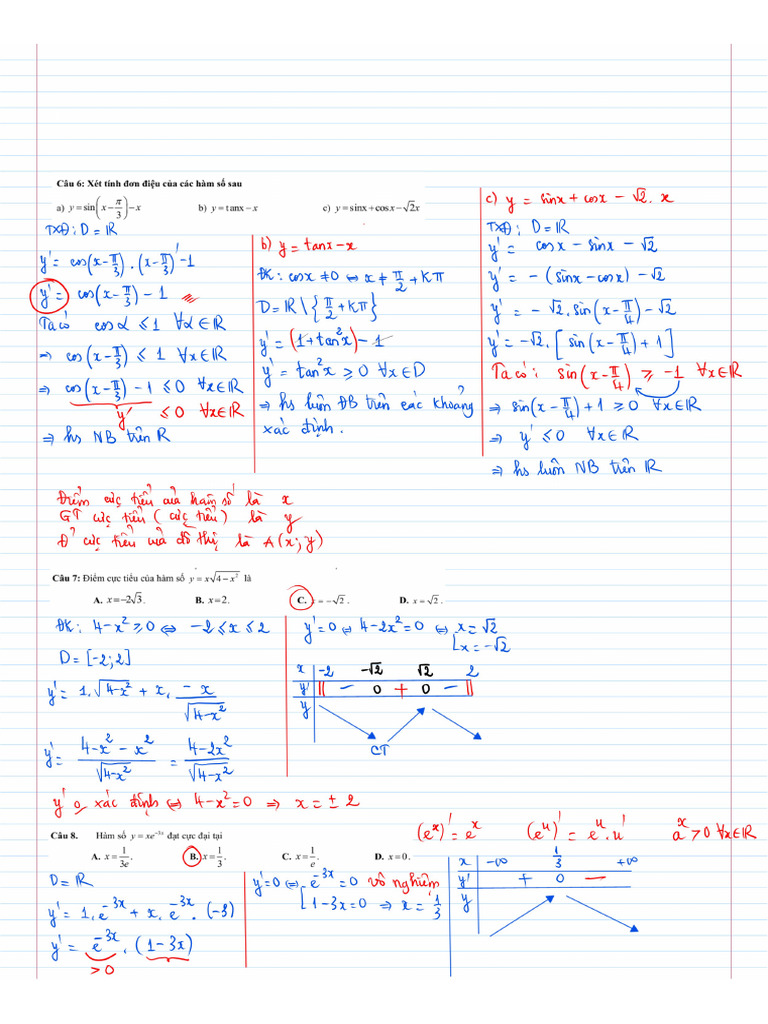 Câu 6: Xét tính đơn điệu của các hàm số sau
a) y = sin(x − π/3) − x b) y = tanx − x c) y = sinx + cosx − √2x
TXĐ: D = ℝ
y' = cos(x − π/3).(x − π/3)' − 1
y' = cos(x − π/3) − 1
Ta có cosα ≤ 1 ∀α ∈ ℝ
⇒ cos(x − π/3) ≤ 1 ∀x ∈ ℝ
⇒ cos(x − π/3) − 1 ≤ 0 ∀x ∈ ℝ
y' ≤ 0 ∀x ∈ ℝ
⇒ hs NB trên R
b) y = tanx − x
ĐK: cosx ≠ 0 ⇔ x ≠ π/2 + Kπ
D = ℝ \ {π/2 + Kπ}
y' = (1 + tan²x) − 1
y' = tan²x ≥ 0 ∀x ∈ D
⇒ hs luôn ĐB trên các khoảng
xác định.
c) y = sinx + cosx − √2. x
TXĐ: D = ℝ
y' = cosx − sinx − √2
y' = − (sinx − cosx) − √2
y' = − √2. sin(x − π/4) − √2
y' = −√2. [sin(x − π/4) + 1]
Ta có: sin(x − π/4) ≥ −1 ∀x ∈ ℝ
⇒ sin(x − π/4) + 1 ≥ 0 ∀x ∈ ℝ
⇒ y' ≤ 0 ∀x ∈ ℝ
⇒ hs luôn NB trên ℝ
Điểm cực tiểu của hàm số là x
GT cực tiểu (cực tiểu) là y
Đ' cực tiểu của đồ thị là A(x; y)
Câu 7: Điểm cực tiểu của hàm số y = x√(4 − x²) là
A. x = −2√3. B. x = 2. C. x = −√2. D. x = √2.
ĐK: 4 − x² ≥ 0 ⇔ −2 ≤ x ≤ 2
D = [−2; 2]
y' = 1.√(4 − x²) + x. −x/√(4 − x²)
y' = (4 − x² − x²)/√(4 − x²) = (4 − 2x²)/√(4 − x²)
y' o xác định ⇔ 4 − x² = 0 ⇒ x = ± 2
y' = 0 ⇔ 4 − 2x² = 0 ⇔ [x = √2
x = −√2
x −2 −√2 √2 2
y' || − 0 + 0 − ||
y
CT
Câu 8. Hàm số y = xe⁻³ˣ đạt cực đại tại
A. x = 1/3e. B. x = 1/3. C. x = 1/e. D. x = 0.
(eˣ)' = eˣ (eᵘ)' = eᵘ.u' aˣ > 0 ∀x ∈ ℝ
D = ℝ
y' = 1.e⁻³ˣ + x.e⁻³ˣ.(−3)
y' = e⁻³ˣ.(1 − 3x)
> 0
y' = 0 ⇔ [e⁻³ˣ = 0 vô nghiệm
1 − 3x = 0 ⇒ x = 1/3
x −∞ 1/3 +∞
y' + 0 −
y